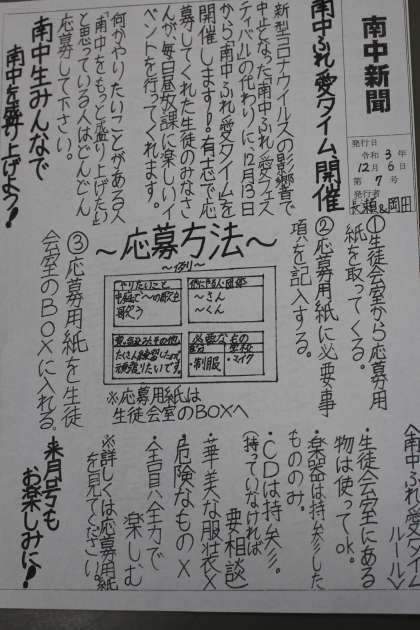 南中新聞
発行日
令和3年
12月6日
第7号
発行者
長瀬&岡田
南中ふれ愛タイム、開催
新型コロナウイルスの影響で
中止となった「南中ふれ愛フェス
ティバル」の代わりに、12月13日
から「南中ふれ愛タイム」を
開催します!!有志で応
募してくれた生徒のみなさ
んが、毎日昼放課に楽しいイ
ベントを行ってくれます。
何かやりたいことがある人
「南中をもっと盛り上げたい」
と思っている人はどんどん
応募して下さい。
南中生みんなで
南中を盛り上げよう!
~応募方法~
①生徒会室から応募用
紙を取ってくる。
②応募用紙に必要事
項を記入する。
~例~
やりたいこと
歌う
~さん
~くん
意気込みその他
たくさん練習したので
頑張りたいです。
必要なもの
・制服
・マイク
※応募用紙は
生徒会室のBOXへ
③応募用紙を生徒
会室のBOXに入れる。
<南中ふれ愛タイム
ルール>
・生徒会室にある
物は使ってok。
・楽器は持参した
もののみ。
・CDは持参。
(持っていなければ
要相談)
・華美な服装×
・危険なもの×
・全員が全力で
楽しむ
※詳しくは応募用紙
を見てください。
来月号も
お楽しみに!